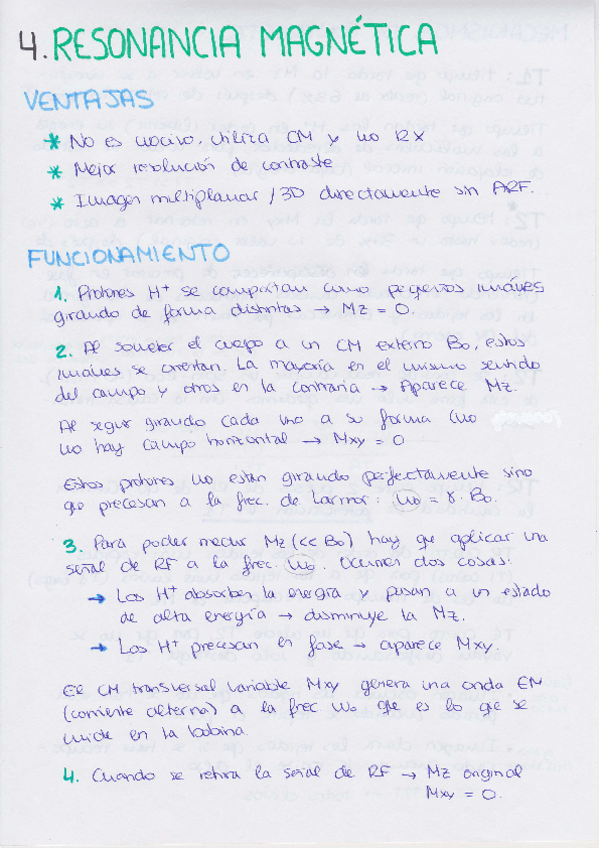 4. RESONANCIA MAGNÉTICA
VENTAJAS
* No es nocivo, utiliza CM y no RX
* Mejor resolución de contraste
* Imagen multiplanar / 3D directamente sin ARF.
FUNCIONAMIENTO
1. Protones H+ se comportan como pequeños imanes
girando de forma distintas → Mz = 0.
2. Al someter el cuerpo a un CM externo B₀, estos
imanes se orientan. La mayoría en el mismo sentido
del campo y otros en la contraria → Aparece Mz.
Al seguir girando cada uno a su forma (no
no hay campo horizontal → Mxy = 0
Estos protones no están girando perfectamente sino
que precesan a la frec. de Larmor: ω₀ = γ · B₀.
3. Para poder medir Mz (<< B₀) hay que aplicar una
señal de RF a la frec. ω₀. Ocurren dos cosas:
→ Los H+ absorben la energía y pasan a un estado
de alta energía → disminuye la Mz.
→ Los H+ precesan en fase → aparece Mxy.
El CM transversal variable Mxy genera una onda EM
(corriente alterna) a la frec ω₀ que es lo que se
mide en la bobina.
4. Cuando se retira la señal de RF → Mz original
Mxy = 0.